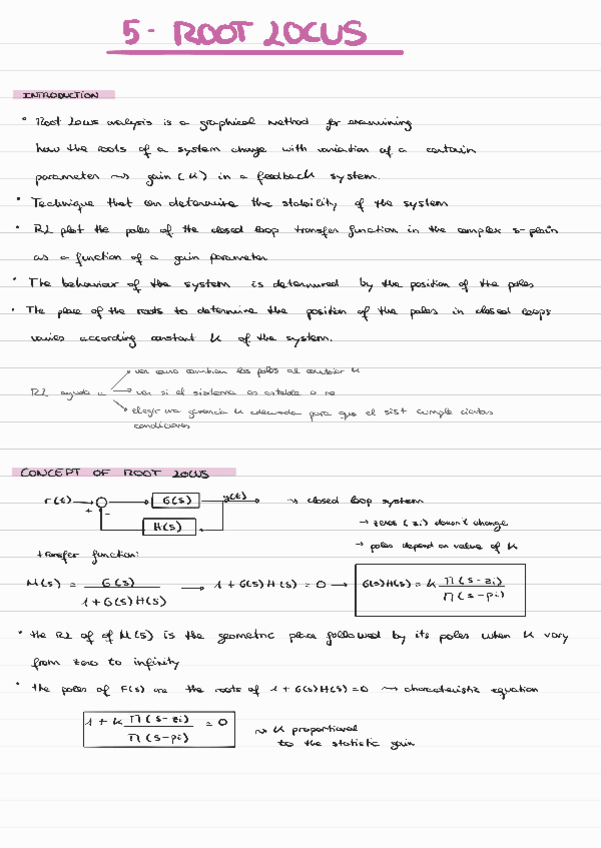 5- ROOT LOCUS
INTRODUCTION
• Root Locus analysis is a graphical method for examining
how the roots of a system change with variation of a certain
parameter ⇝ gain (K) in a feedback system.
• Technique that can determine the stability of the system
• RL plot the poles of the closed loop transfer function in the complex s-plain
as a function of a gain parameter
• The behaviour of the system is determined by the position of the poles
• The place of the roots to determine the position of the poles in closed loops
varies according constant K of the system.
→ ver como cambian los polos al cambiar K
RL ayuda a → ver si el sistema es estable o no
→ elegir una ganancia K adecuada para que el sist cumple ciertas
condiciones
CONCEPT OF ROOT LOCUS
r(t) → + - G(s) y(t) → closed loop system
H(s) → zeros (zi) doesn't change
transfer function: → poles depend on value of K
M(s) = G(s) / 1+G(s)H(s) → 1+G(s)H(s) = 0 → G(s)H(s) = K Π(s-zi) / Π(s-pi)
• the RL of of M(s) is the geometric place followed by its poles when K vary
from zero to infinity
• the poles of F(s) are the roots of 1+G(s)H(s)=0 → characteristic equation
1 + K Π(s-zi) / Π(s-pi) = 0 ⇝ K proportional
to the statistic gain